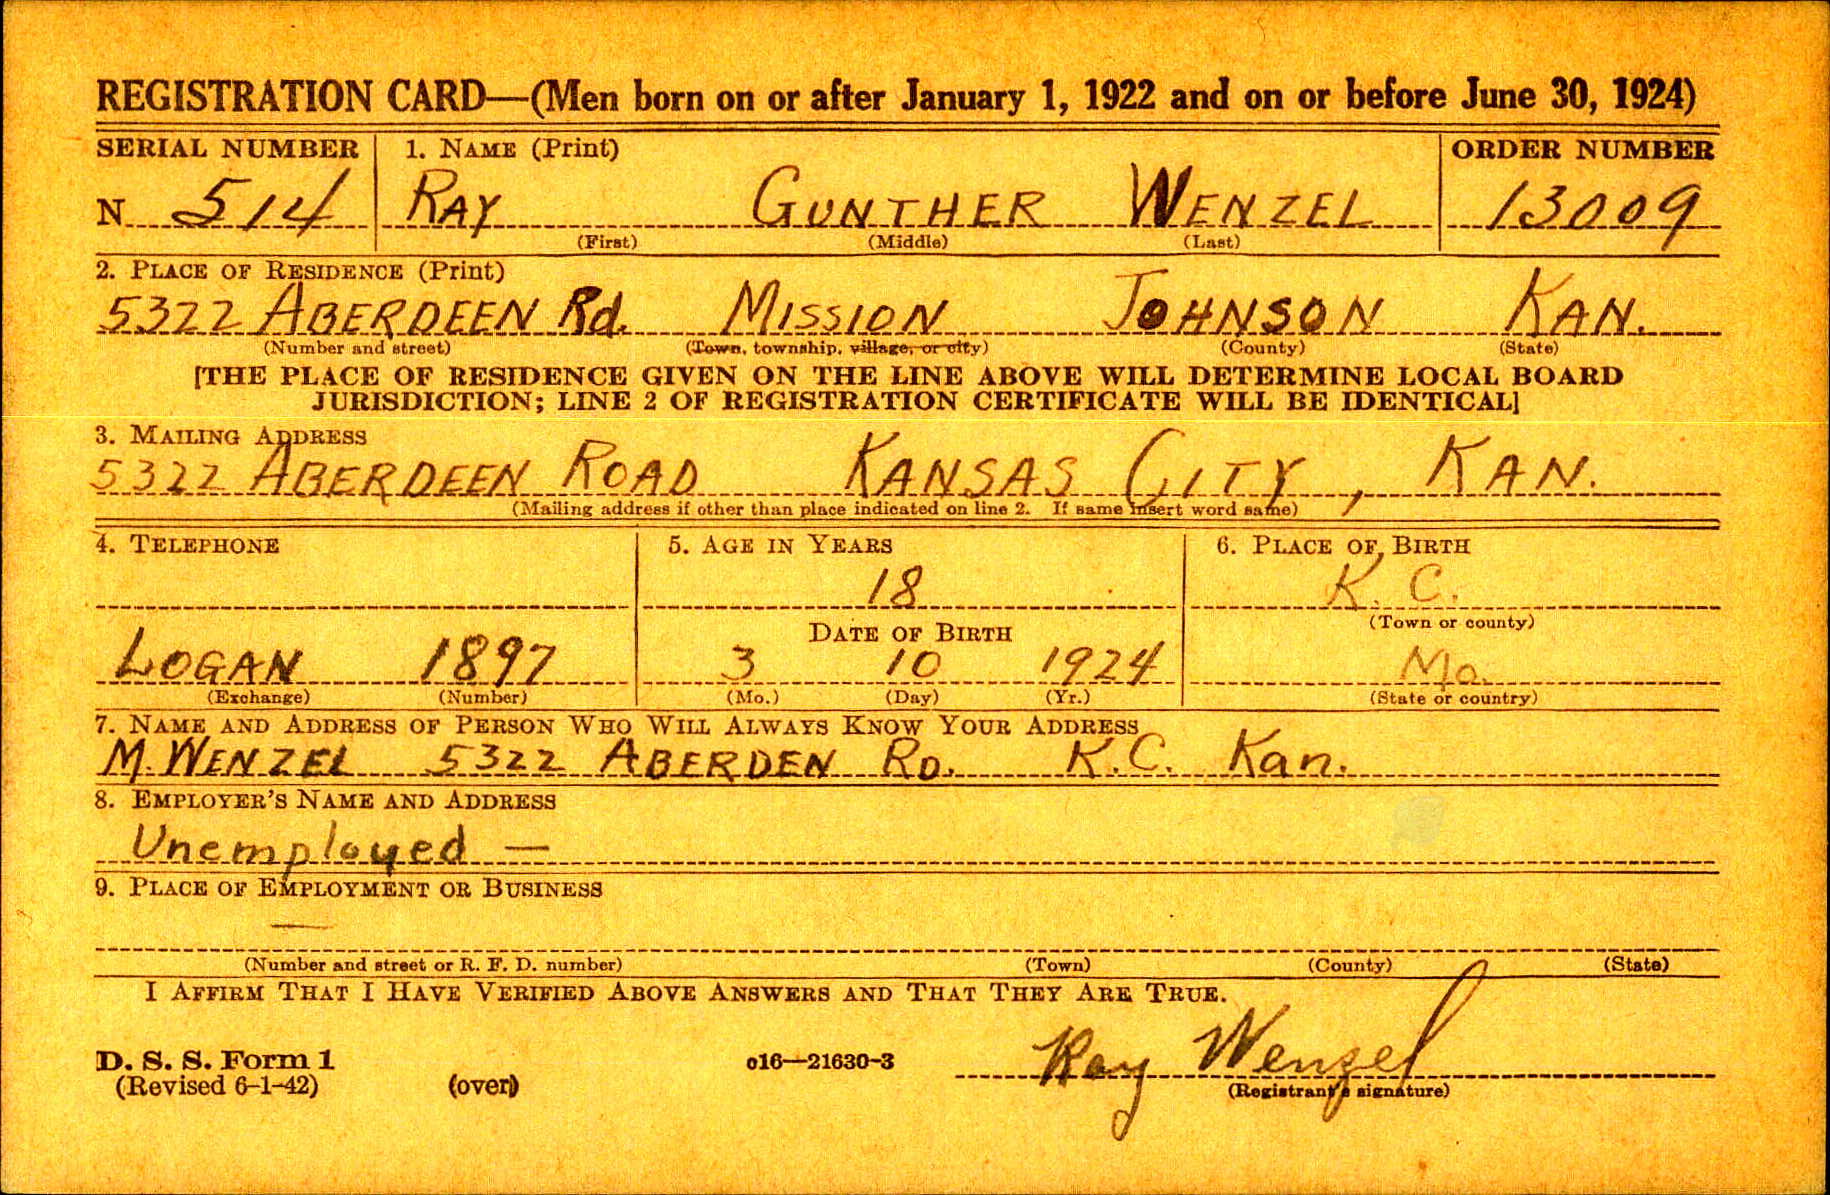 REGISTRATION CARD—(Men born on or after January 1, 1922 and on or before June 30, 1924)
SERIAL NUMBER 1. NAME (Print) ORDER NUMBER
N 514 RAY GUNTHER WENZEL 13009
(First) (Middle) (Last)
2. PLACE OF RESIDENCE (Print)
5322 ABERDEEN Rd. MISSION JOHNSON KAN.
(Number and street) (Town, township, village, or city) (County) (State)
[THE PLACE OF RESIDENCE GIVEN ON THE LINE ABOVE WILL DETERMINE LOCAL BOARD
JURISDICTION; LINE 2 OF REGISTRATION CERTIFICATE WILL BE IDENTICAL]
3. MAILING ADDRESS
5322 ABERDEEN ROAD KANSAS CITY, KAN.
(Mailing address if other than place indicated on line 2. If same insert word same)
4. TELEPHONE 5. AGE IN YEARS 6. PLACE OF BIRTH
18 K. C.
DATE OF BIRTH (Town or county)
LOGAN 1897 3 10 1924 Mo.
(Exchange) (Number) (Mo.) (Day) (Yr.) (State or country)
7. NAME AND ADDRESS OF PERSON WHO WILL ALWAYS KNOW YOUR ADDRESS
M. WENZEL 5322 ABERDEN RD. K.C. Kan.
8. EMPLOYER'S NAME AND ADDRESS
Unemployed —
9. PLACE OF EMPLOYMENT OR BUSINESS
—
(Number and street or R. F. D. number) (Town) (County) (State)
I AFFIRM THAT I HAVE VERIFIED ABOVE ANSWERS AND THAT THEY ARE TRUE.
D. S. S. Form 1 o16—21630-3 Ray Wenzel
(Revised 6-1-42) (over) (Registrant's signature)